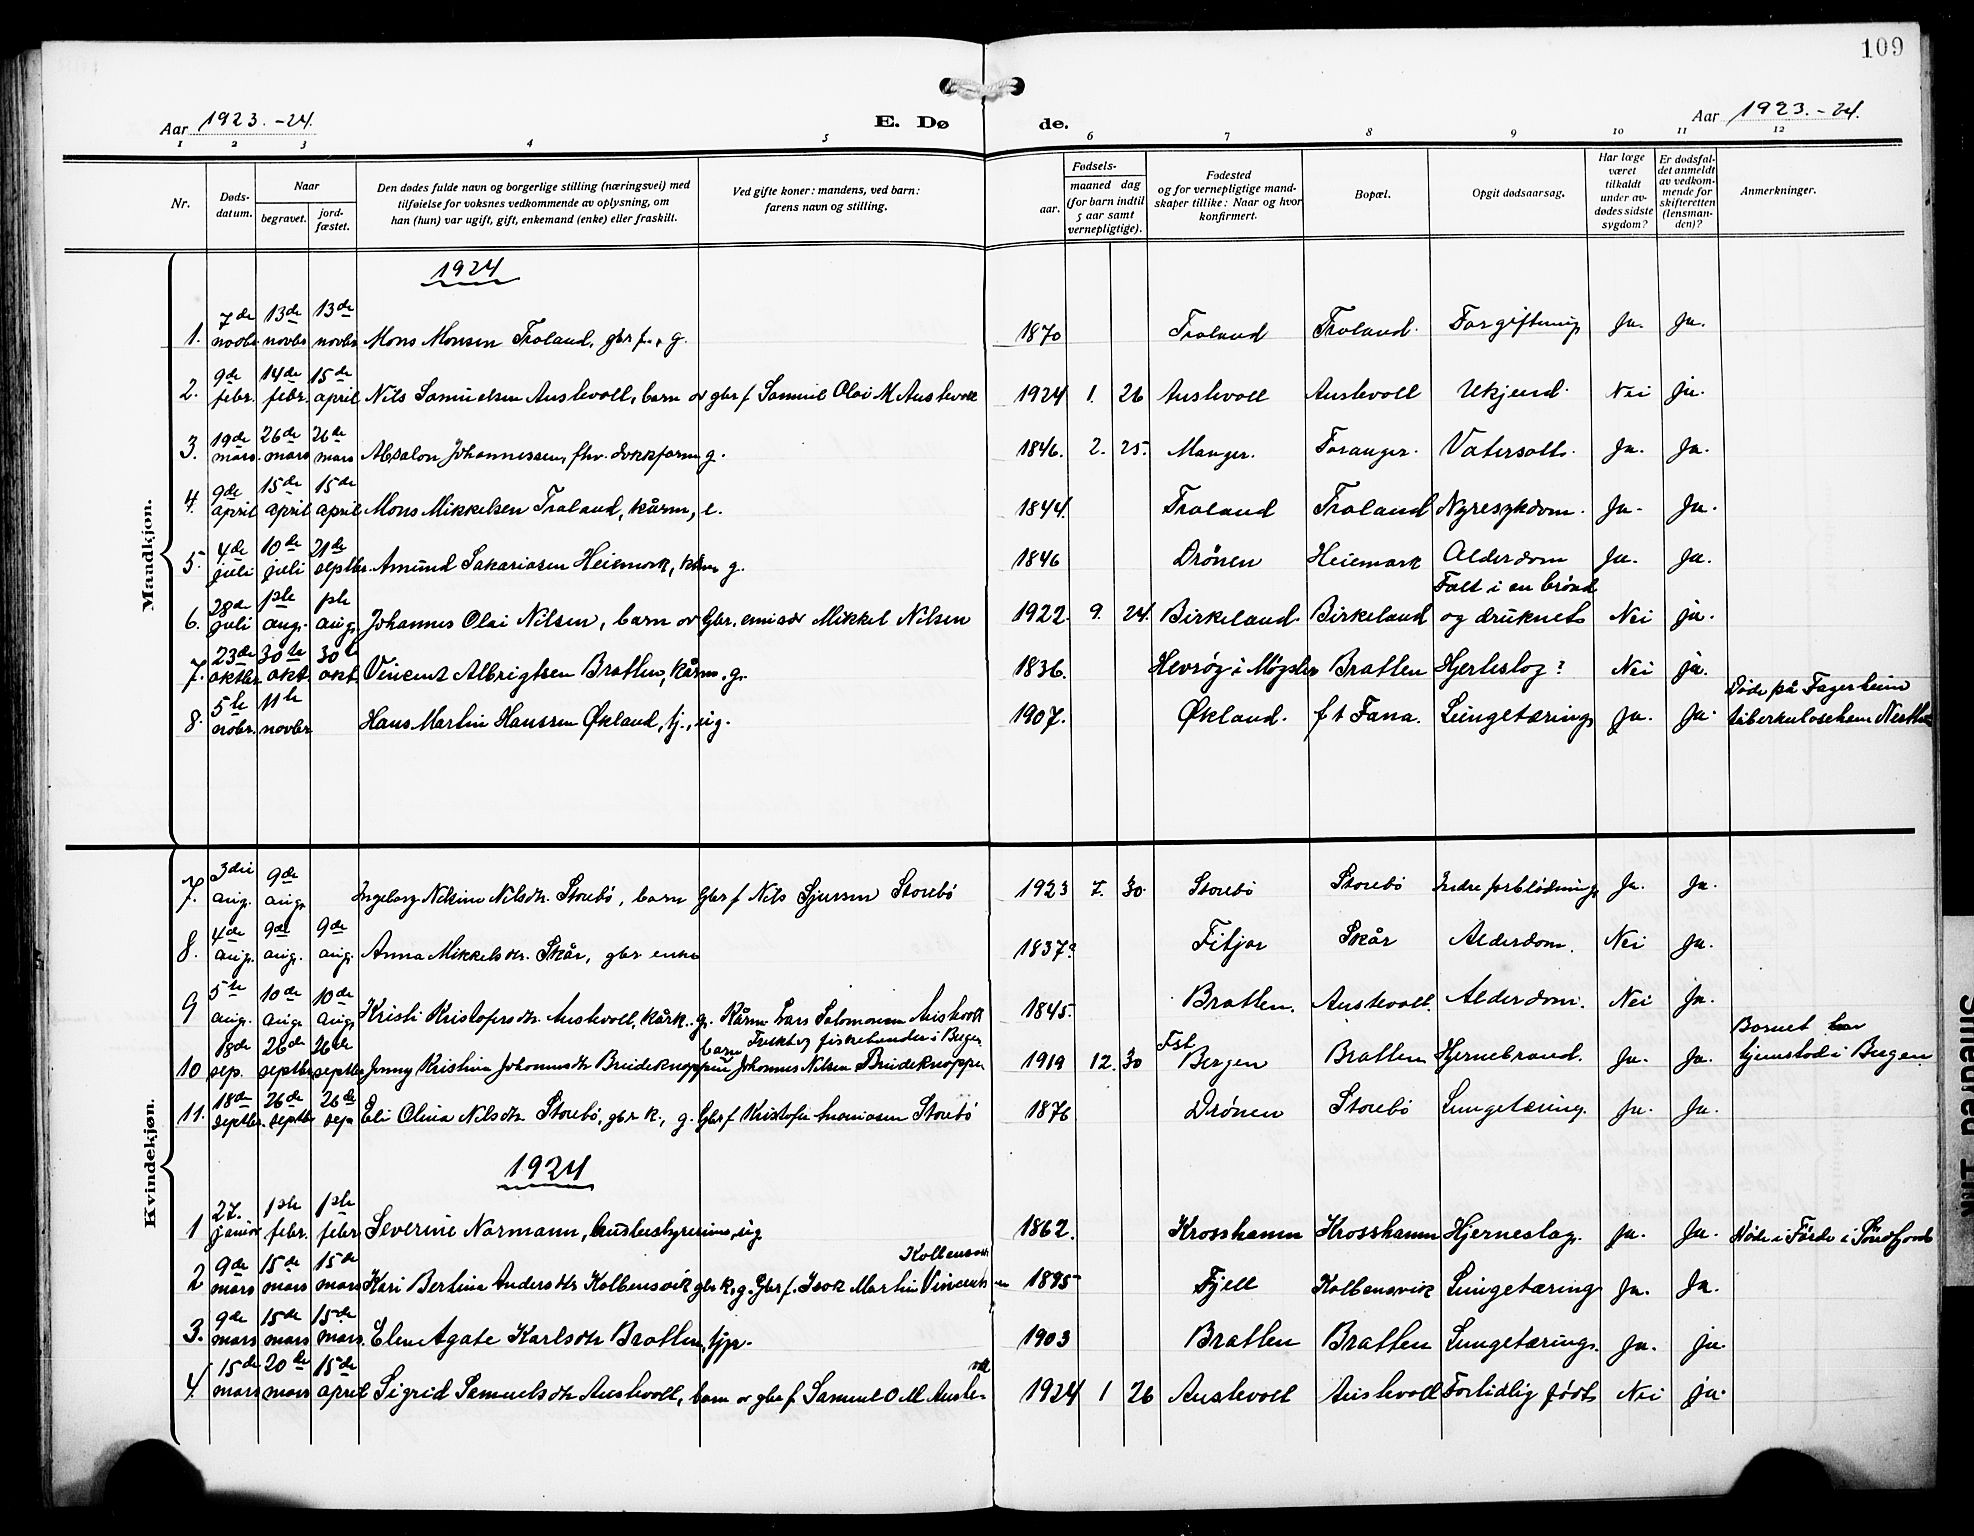 109
Aar 1923.-24.
E. Dø de.
Aar 1923.-24.
1 2 3 4 5 6 7 8 9 10 11 12
Nr.
Døds-
datum.
Naar
begravet.
jord-
fæstet.
Den dødes fulde navn og borgerlige stilling (næringsvei) med
tilføielse for voksnes vedkommende av oplysning, om
han (hun) var ugift, gift, enkemand (enke) eller fraskilt.
Ved gifte koner: mandens, ved barn:
farens navn og stilling.
Fødsels-
aar.
maaned dag
(for barn indtil
5 aar samt
vernepligtige).
Fødested
og for vernepligtige mand-
skaper tillike: Naar og hvor
konfirmert.
Bopæl.
Opgit dødsaarsag.
Har læge
været
tilkaldt
under av-
dødes sidste
sygdom?
Er dødsfal-
det anmeldt
av vedkom-
mende for
skifteretten
(lensman-
den)?
Anmerkninger.
Mandkjøn.
1924
7de 13de 13de
1. novbr. novbr. novbr. Mons Monsen Troland, gbr f., g. 1870 Troland Troland. Forgiftning Ja. Ja.
9de 14de 15de
2. febr. febr. april Nils Samuelsen Austevoll, barn av gbr f Samuel Olai M Austevoll 1924 1. 26 Austevoll Austevoll Ukjend. Nei ja.
19de 26de 26de
3. mars. mars mars Absalon Johannessen, fhv. dokkform. g. 1846. 2. 25. Manger. Toranger. Vatersott. Ja. Ja.
9de 15de 15de
4. april april april Mons Mikkelsen Troland, kårm, e. 1844. Troland Troland Nyresykdom. Ja. Ja.
4de 10de 21de
5. juli juli septbr. Amund Sakariasen Heiemark, kårm g. 1846 Drønen Heiemark Alderdom Ja. Ja.
28de 1ste 1ste Falt i en brønd
6. juli aug. aug. Johannes Olai Nilsen, barn av Gbr. emisær Mikkel Nilsen 1922 9. 24. Birkeland. Birkeland og druknet Nei ja.
23de 30te 30te
7. oktbr. okt. okt. Vincent Albrigtsen Bratten, kårm. g. 1836. Hevrøy i Møgster Bratten Hjerteslag? Nei ja.
5te 11te Døde på Fagerheim
8. nobr. novbr Hans Martin Hanssen Økland, tj., ug. 1907. Økland. f t Fana. Lungetæring Ja. Ja. tuberkulosehem Nesttun
Kvindekjøn.
3die 9de
7. aug. aug. Ingeborg Nelsine Nilsdtr. Storebø, barn Gbr f Nils Sjursen Storebø 1923 7. 30. Storebø Storebø Indre forblødning Ja. Ja.
4de 9de 9de
8. aug. aug. aug. Anna Mikkelsdtr. Skår, gbr enke 1837? Fitjar Skår Alderdom. Nei Ja.
5te 10de 10de
9 aug. aug. aug. Kristi Kristofersdtr. Austevoll, kårk. g. Kårm Lars Salomonsen Austevoll 1845. Bratten. Austevoll. Alderdom. Nei Ja.
18de 26de 26de barn fiskehandler i Bergen Fst. Barnet har
10 sep. septbr septbr Jenny Kristina Johannesdtr Brudeknappen Johannes Nilsen Brudeknappen 1919 12. 30 Bergen Bratten Hjernebrand. Ja. Ja. hjemstad i Bergen.
18de 26de 26de
11. septbr. septbr sep Eli Olina Nilsdtr. Storebø, gbr k., g. Gbr f Kristofer Storebø 1876 Drønen Storebø Lungetæring. Ja. Ja.
1924
27. 1ste 1ste
1 januar febr. febr. Severine Normann, husbestyrerinne, ug 1862. Krosshamn Krosshamn Hjerneslag. Ja. Ja. Døde i Førde i Søndfjord
9de 15de 15de Kolbensvik
2 mars mars mars Kari Bertina Andersdtr Kolbensvik gbr k, g. Gbr f. Isak Martin Vincentsen 1895 Fjell Kolbensvik Lungetæring Ja. Ja.
9de 15de 15de
3. mars mars mars. Elen Agate Karlsdtr Bratten, tjp. 1903 Bratten Bratten Lungetæring. Ja. ja
15de 20de 15de voll
4. mars mars april Sigrid Samuelsdtr Austevoll, barn av gbr f Samuel O M Auste- 1924 1 26 Austevoll Austevoll Fortidlig født Nei ja.